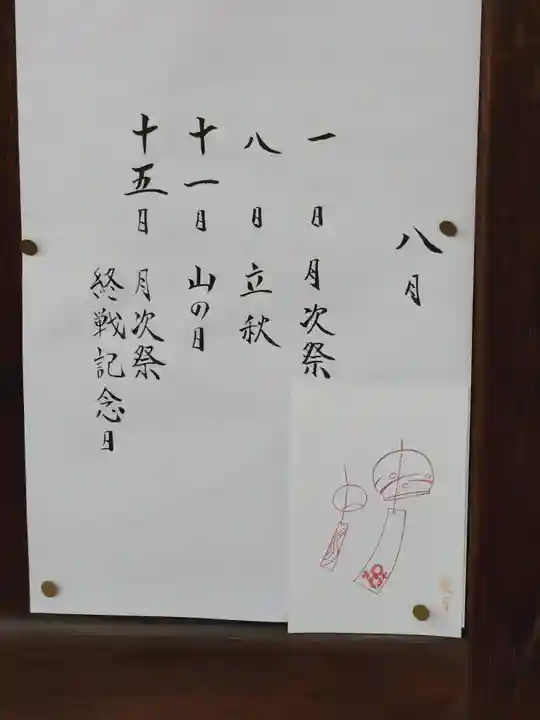 八月
一日 月次祭
八日 立秋
十一日 山の日
十五日 月次祭
終戦記念日